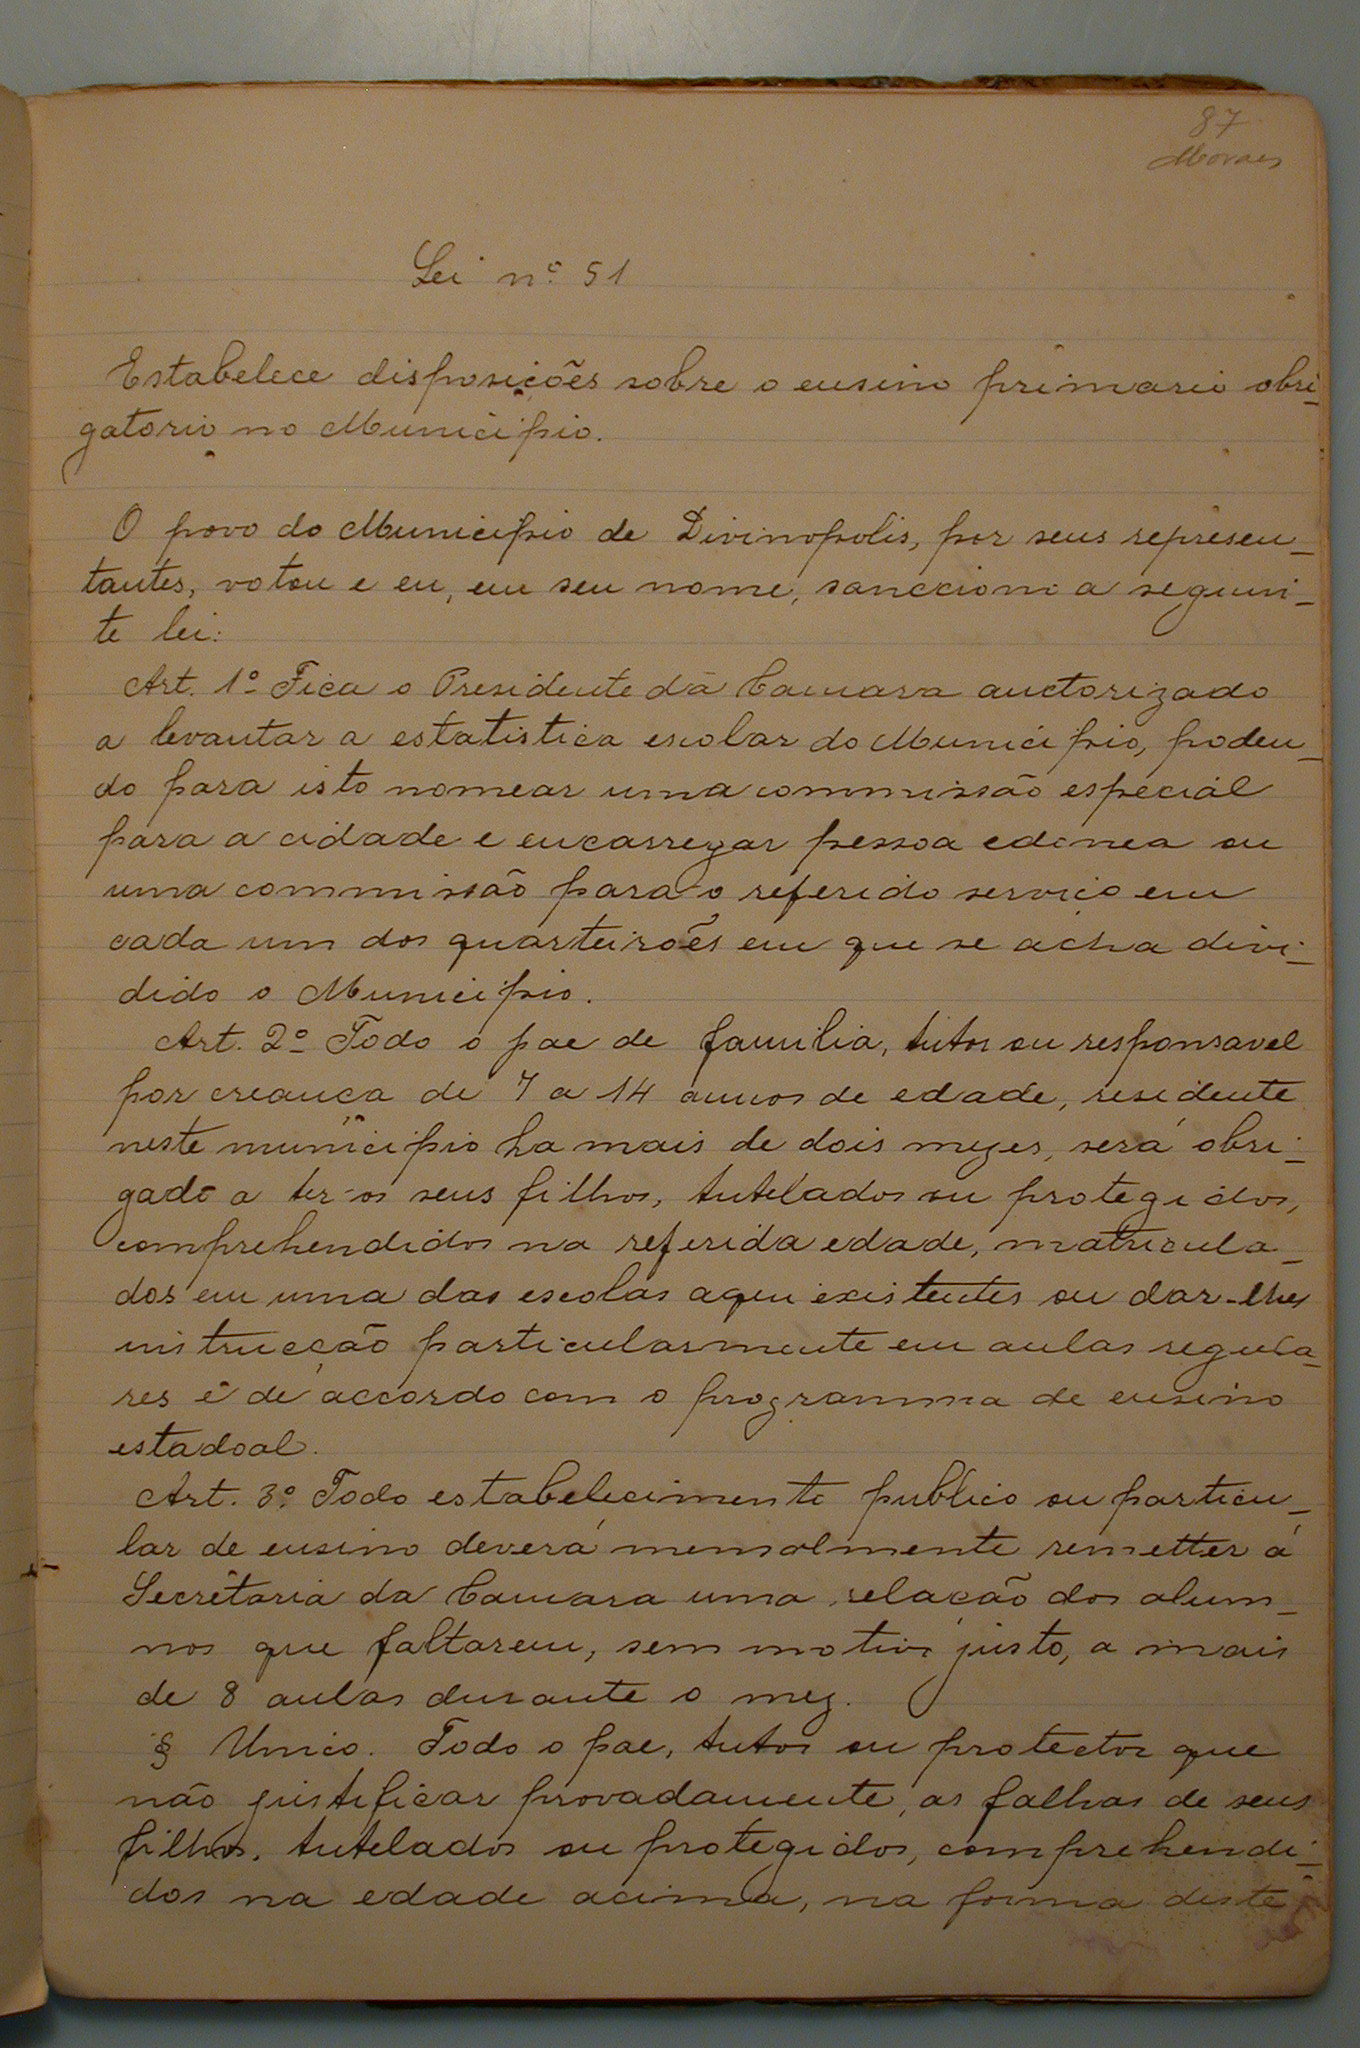 87
Moraes
Lei nº 51
Estabelece disposições sobre o ensino primario obri-
gatorio no Municipio.
O povo do Municipio de Divinopolis, por seus represen-
tantes, votou e eu, em seu nome, sancciono a seguin-
te lei:
Art. 1º Fica o Presidente da Camara auctorizado
a levantar a estatistica escolar do Municipio, poden-
do para isto nomear uma commissão especial
para a cidade e encarregar pessoa edonea ou
uma commissão para o referido serviço em
cada um dos quarteirões em que se acha divi-
dido o Municipio.
Art. 2º Todo o pae de familia, tutor ou responsavel
por creança de 7 a 14 annos de edade, residente
neste municipio ha mais de dois mezes, será obri-
gado a ter os seus filhos, tutelados ou protegidos,
comprehendidos na referida edade, matricula-
dos em uma das escolas aqui existentes ou dar-lhes
instrucção particularmente em aulas regula-
res e de accordo com o programma de ensino
estadoal.
Art. 3º Todo estabelecimento publico ou particu-
lar de ensino deverá mensalmente remetter á
Secretaria da Camara uma relação dos alum-
nos que faltarem, sem motivo justo, a mais
de 8 aulas durante o mez.
§ Unico. Todo o pae, tutor ou protector que
não justificar provadamente, as falhas de seus
filhos, tutelados ou protegidos, comprehendi-
dos na edade acima, na forma deste